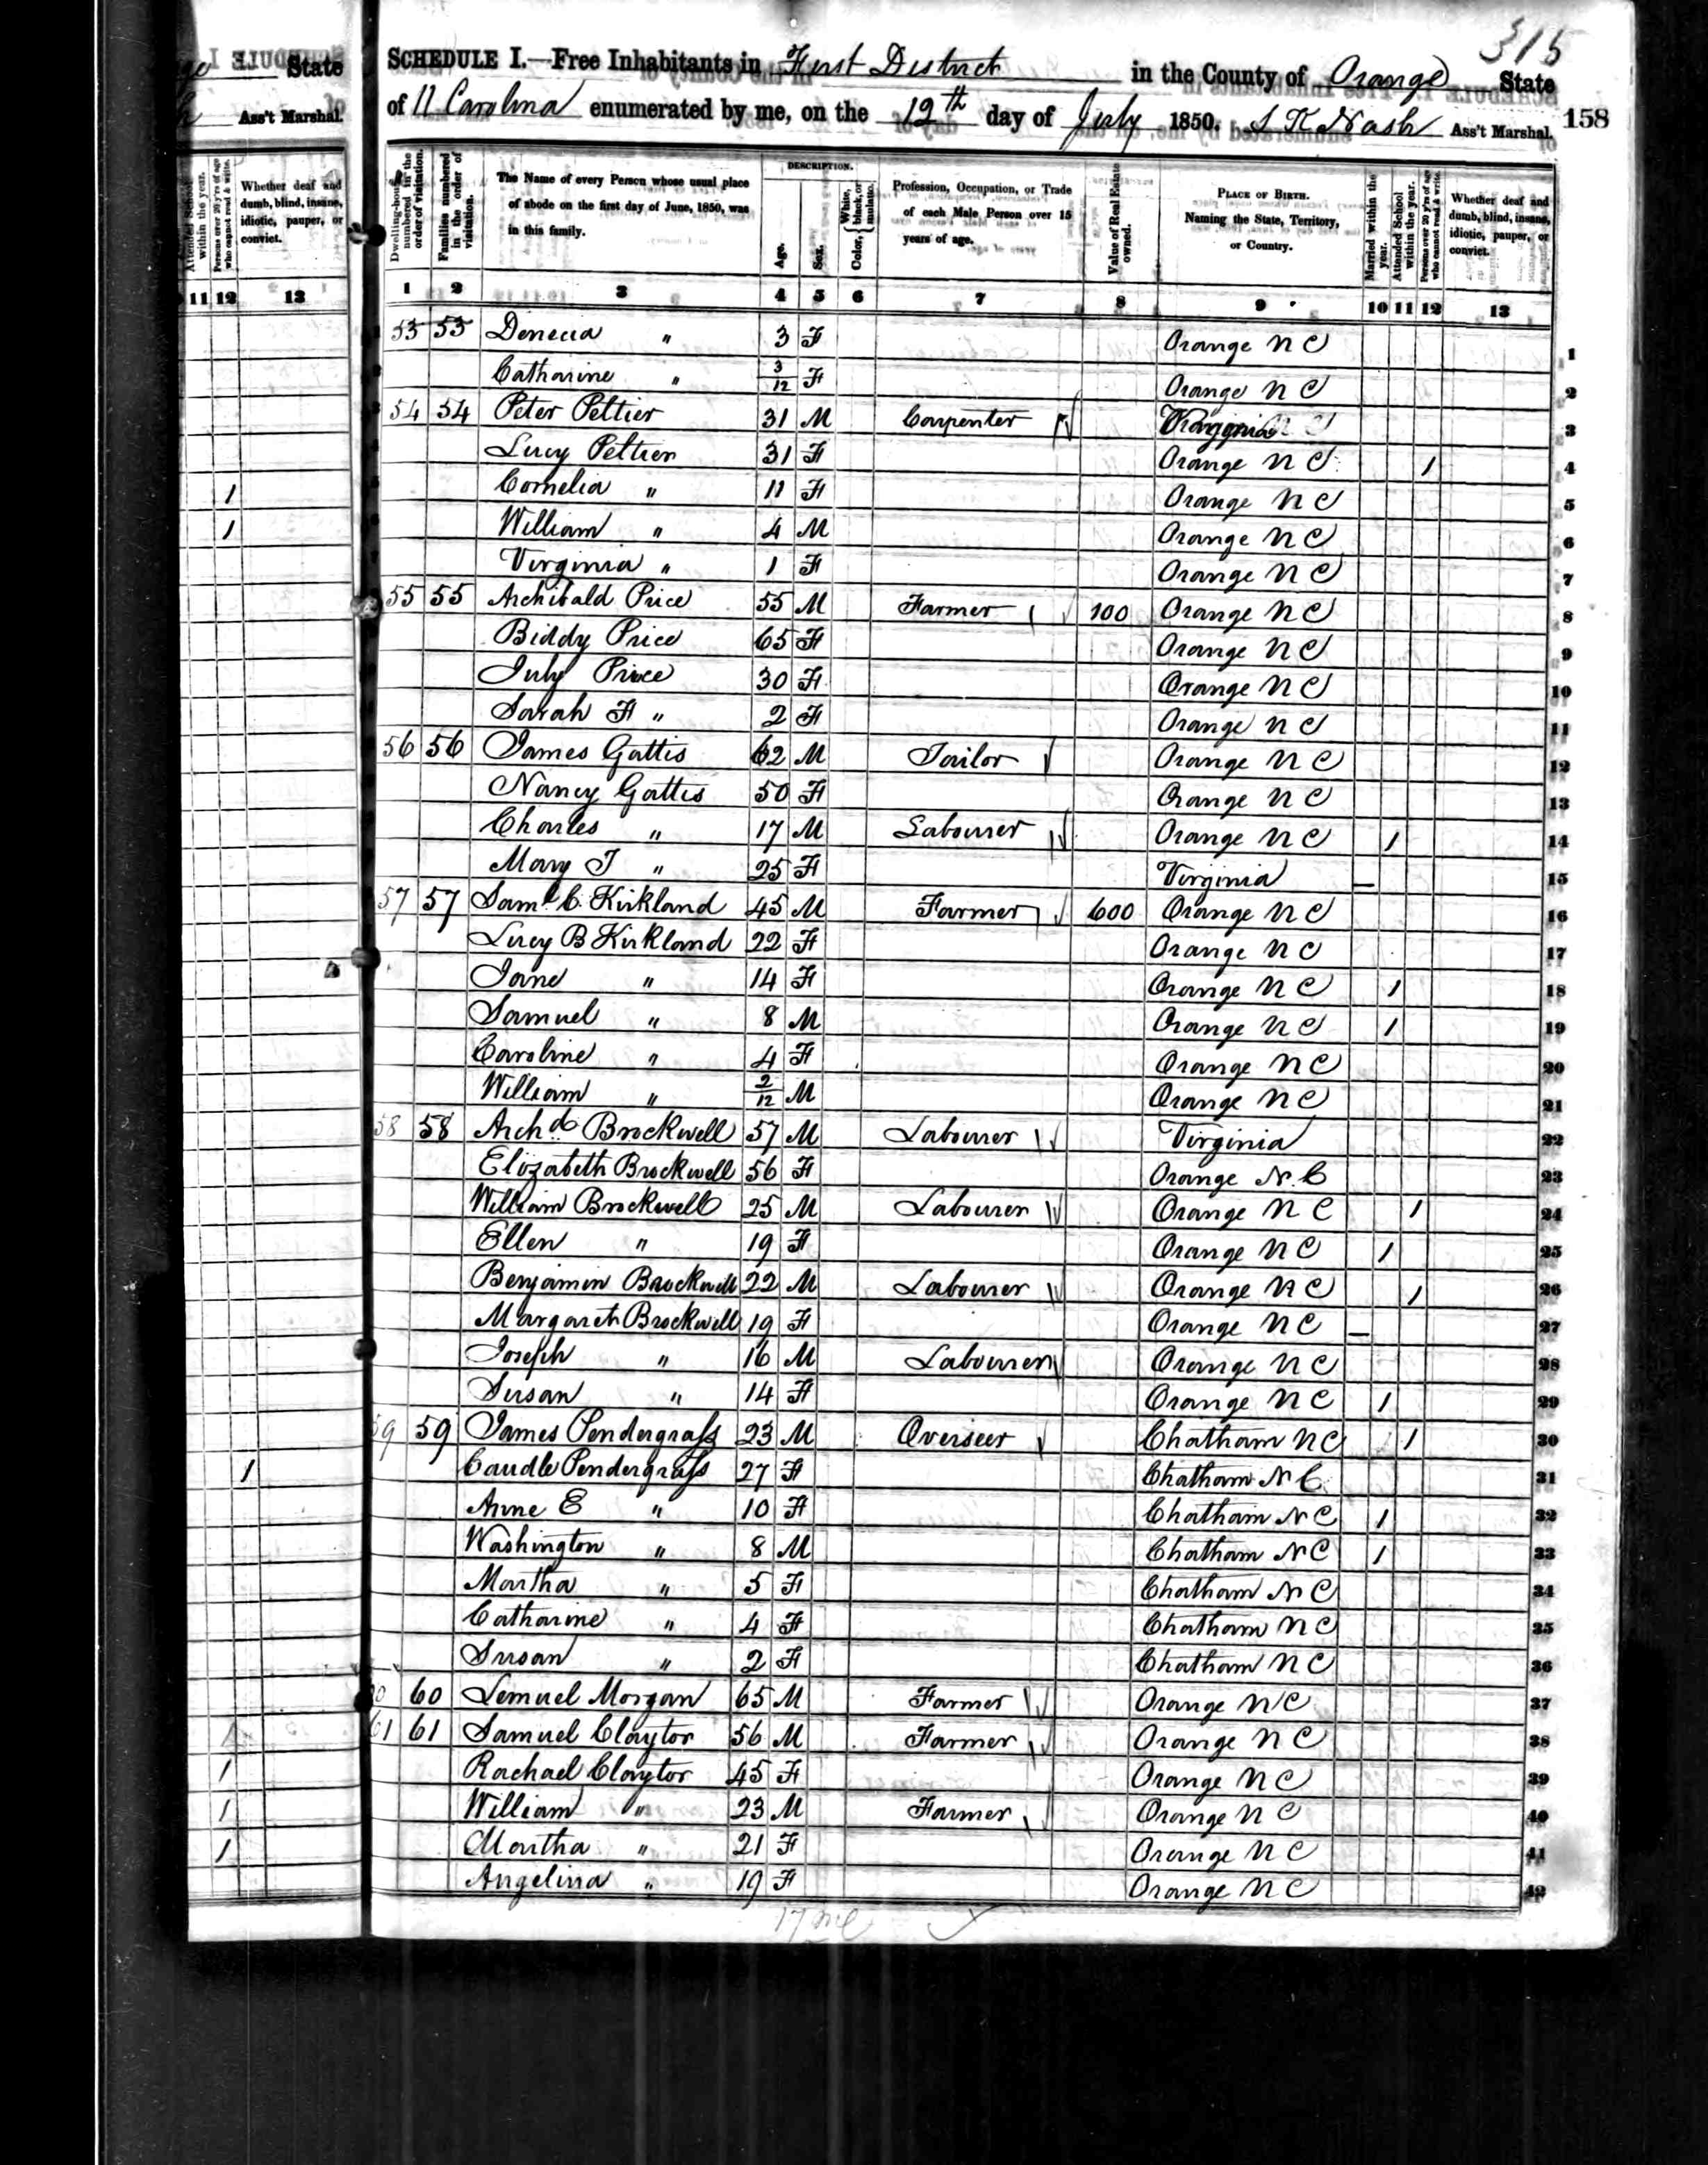 315
SCHEDULE I.—Free Inhabitants in First District in the County of Orange State
of N Carolina enumerated by me, on the 12th day of July 1850. S K Nash Ass't Marshal. 158
State
Ass't Marshal.
Attended School within the year.
Persons over 20 y'rs of age who cannot read & write.
Whether deaf and dumb, blind, insane, idiotic, pauper, or convict.
11 12 13
Dwelling-houses numbered in the order of visitation.
Families numbered in the order of visitation.
The Name of every Person whose usual place of abode on the first day of June, 1850, was in this family.
DESCRIPTION.
Age.
Sex.
Color, { White, black, or mulatto.
Profession, Occupation, or Trade of each Male Person over 15 years of age.
Value of Real Estate owned.
PLACE OF BIRTH. Naming the State, Territory, or Country.
Married within the year.
Attended School within the year.
Persons over 20 y'rs of age who cannot read & write.
Whether deaf and dumb, blind, insane, idiotic, pauper, or convict.
1 2 3 4 5 6 7 8 9 10 11 12 13
53 53 Denecia " 3 F Orange N C 1
Catharine " 3/12 F Orange N C 2
54 54 Peter Peltier 31 M Carpenter Virginia 3
Lucy Peltier 31 F Orange N C 1 4
Cornelia " 11 F Orange N C 5
William " 4 M Orange N C 6
Virginia " 1 F Orange N C 7
55 55 Archibald Price 55 M Farmer 100 Orange N C 8
Biddy Price 65 F Orange N C 9
July Price 30 F Orange N C 10
Sarah F " 2 F Orange N C 11
56 56 James Gattis 62 M Tailor Orange N C 12
Nancy Gattis 50 F Orange N C 13
Charles " 17 M Labourer Orange N C 1 14
Mary J " 25 F Virginia — 15
57 57 Saml C. Kirkland 45 M Farmer 600 Orange N C 16
Lucy B Kirkland 22 F Orange N C 17
Jane " 14 F Orange N C 1 18
Samuel " 8 M Orange N C 1 19
Caroline " 4 F Orange N C 20
William " 2/12 M Orange N C 21
58 58 Archd Brockwell 57 M Labourer Virginia 22
Elizabeth Brockwell 56 F Orange N. C 23
William Brockwell 25 M Labourer Orange N C 1 24
Ellen " 19 F Orange N C 1 25
Benjamin Brockwell 22 M Labourer Orange N C 1 26
Margaret Brockwell 19 F Orange N C — 27
Joseph " 16 M Labourer Orange N C 28
Susan " 14 F Orange N C 1 29
59 59 James Pendergrass 23 M Overseer Chatham N C 1 30
Caudle Pendergrass 27 F Chatham N C 31
Anne E " 10 F Chatham N C 1 32
Washington " 8 M Chatham N C 1 33
Martha " 5 F Chatham N C 34
Catharine " 4 F Chatham N C 35
Susan " 2 F Chatham N C 36
60 Lemuel Morgan 65 M Farmer Orange N C 37
61 61 Samuel Claytor 56 M Farmer Orange N C 38
Rachael Claytor 45 F Orange N C 39
William " 23 M Farmer Orange N C 40
Martha " 21 F Orange N C 41
Angelina " 19 F Orange N C 42